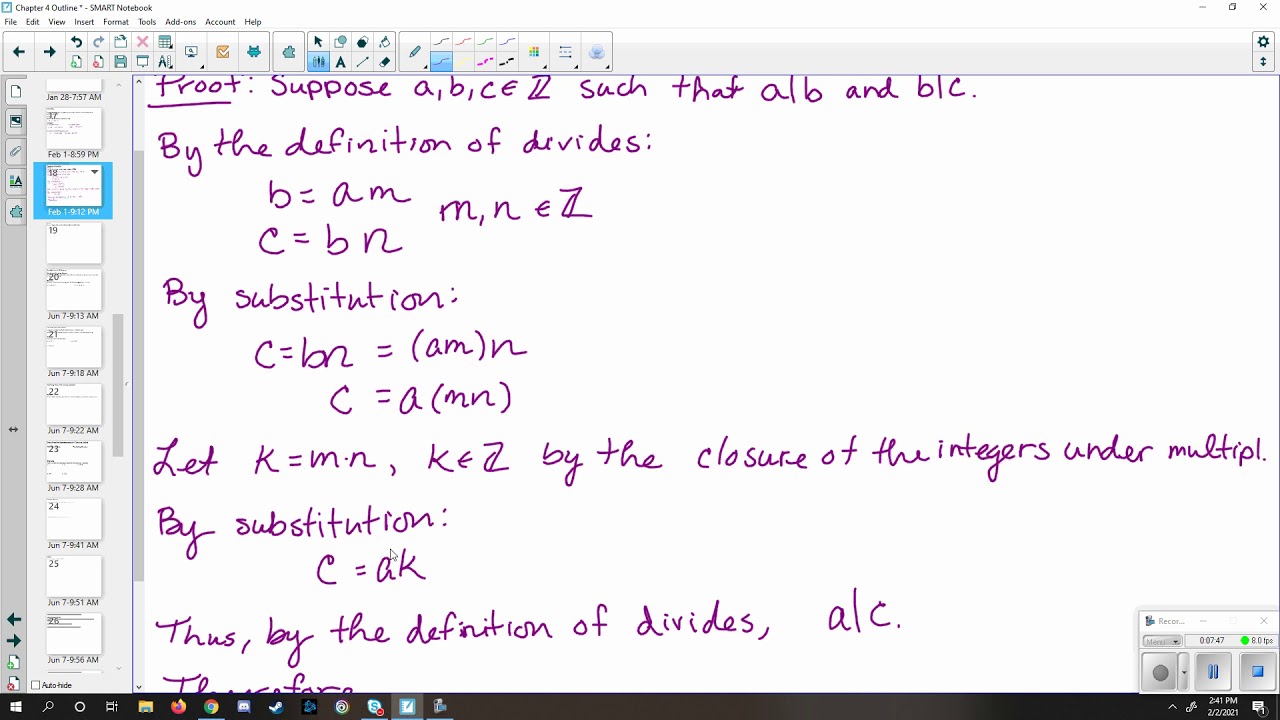 Chapter 4 Outline * - SMART Notebook
File Edit View Insert Format Tools Add-ons Account Help
Jan 28-7:57 AM
17
Feb 1-8:59 PM
18
Feb 1-9:12 PM
19
20
Jun 7-9:13 AM
21
Jun 7-9:18 AM
22
Jun 7-9:22 AM
23
Jun 7-9:28 AM
24
Jun 7-9:41 AM
25
Jun 7-9:51 AM
26
Jun 7-9:56 AM
Auto-hide
Proof: Suppose a,b,c∈ℤ such that a|b and b|c.
By the definition of divides:
b = am
m,n ∈ ℤ
c = bn
By substitution:
c=bn = (am)n
c = a(mn)
Let k=m·n, k∈ℤ by the closure of the integers under multipl.
By substitution:
c = ak
Thus, by the definition of divides, a|c.
Therefore
Recor...
Menu
0:07:47
8.0 fps
2:41 PM
2/2/2021